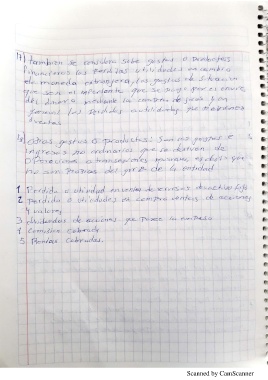 También se considera sobre gastos o productos
financieros las perdidas o utilidades en cambio
de moneda extranjera, los gastos de situacion
que son el importe que se paga por el envio
del dinero mediante la compra de giros y en
general las perdidas o utilidades que
4) Otros gastos o productos: Son los gastos e
ingresos no ordinarios que se derivan de
operaciones o transacciones
no son propias del giro de la entidad
1. Perdida o utilidad en venta de activo fijo
2. Perdida o utilidades en compra ventas de acciones
y valores
3. dividendos de acciones que posee la empresa
4. Comision cobrada
5. Rentas Cobradas.
Scanned by CamScanner